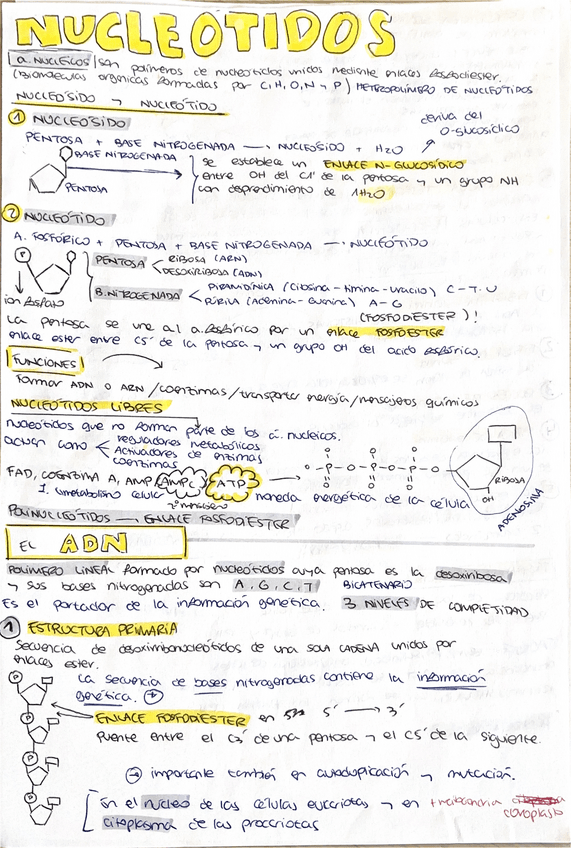 NUCLEÓTIDOS
a. NUCLEICOS son polímeros de nucleótidos unidos mediente enlaces fosfodiester.
(Biomoleculas orgánicas formadas por C, H, O, N y P) HETEROPOLÍMERO DE NUCLEOTIDOS
NUCLEOSIDO y NUCLEÓTIDO
deriva del
O-glucosídico
1 NUCLEÓSIDO
PENTOSA + BASE NITROGENADA → NUCLEÓSIDO + H2O
BASE NITROGENADA
PENTOSA
se establece un ENLACE N-GLUCOSÍDICO
entre OH del C1' de la pentosa y un grupo NH
con deprendimiento de 1H2O
2 NUCLEÓTIDO
A. FOSFÓRICO + PENTOSA + BASE NITROGENADA → NUCLEÓTIDO
P
ión fosfato
PENTOSA < RIBOSA (ARN)
DESOXIRIBOSA (ADN)
B.NITROGENADA < PIRAMIDÍNICA (Citosina - timina - uracilo) C - T - U
PÚRICA (Adenina - Guanina) A - G
(FOSFODIESTER)!
La pentosa se une al a.fosfórico por un enlace FOSFOESTER
enlace ester entre C5' de la pentosa y un grupo OH del acido fosfórico.
FUNCIONES
Formar ADN O ARN / coenzimas / transportar energía / mensajeros químicos
NUCLEÓTIDOS LIBRES
nucleótidos que no forman parte de los á. nucleicos.
actúan como < reguladores metabólicos
Activadores de enzimas
coenzimas
FAD, COENZIMA A, AMP, AMPc ATP
I. metabolismo celular
2º mensajero
moneda energética de la célula
O - P - O - P - O - P - O
O O O
O O O
OH
RIBOSA
ADENOSINA
POLINUCLEÓTIDOS → ENLACE FOSFODIESTER
EL ADN
POLÍMERO LINEAL formado por nucleótidos cuya pentosa es la desoxirribosa
y sus bases nitrogenadas son A, G, C, T BICATENARIO
Es el portador de la información genética. 3 NIVELES DE COMPLETIDAD
1 ESTRUCTURA PRIMARIA
Secuencia de desoxirribonucleótidos de una SOLA CADENA unidos por
enlaces ester.
P
P
P
P
La secuencia de bases nitrogenadas contiene la información
genética. +
ENLACE FOSFODIESTER en 5' → 3'
Puente entre el C3' de una pentosa y el C5' de la siguiente.
→ importante también en autoduplicación y mutación.
En el núcleo de las células eucariotas y en mitocondria
cloroplasto
citoplasma de las procariotas